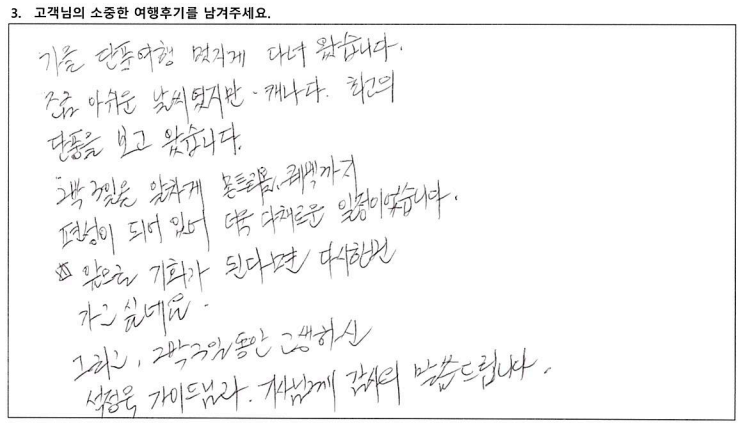 3. 고객님의 소중한 여행후기를 남겨주세요.
가을 단풍여행 멋지게 다녀 왔습니다.
조금 아쉬운 날씨였지만. 캐나다. 최고의
단풍을 보고 왔습니다.
2박 3일을 알차게 몬트리올, 퀘벡까지
편성이 되어 있어 더욱 다채로운 일정이었습니다.
☆ 앞으로 기회가 된다면 다시한번
가고 싶네요.
그리고, 2박 3일동안 고생하신
석정욱 가이드님과. 기사님께 감사의 말씀드립니다.